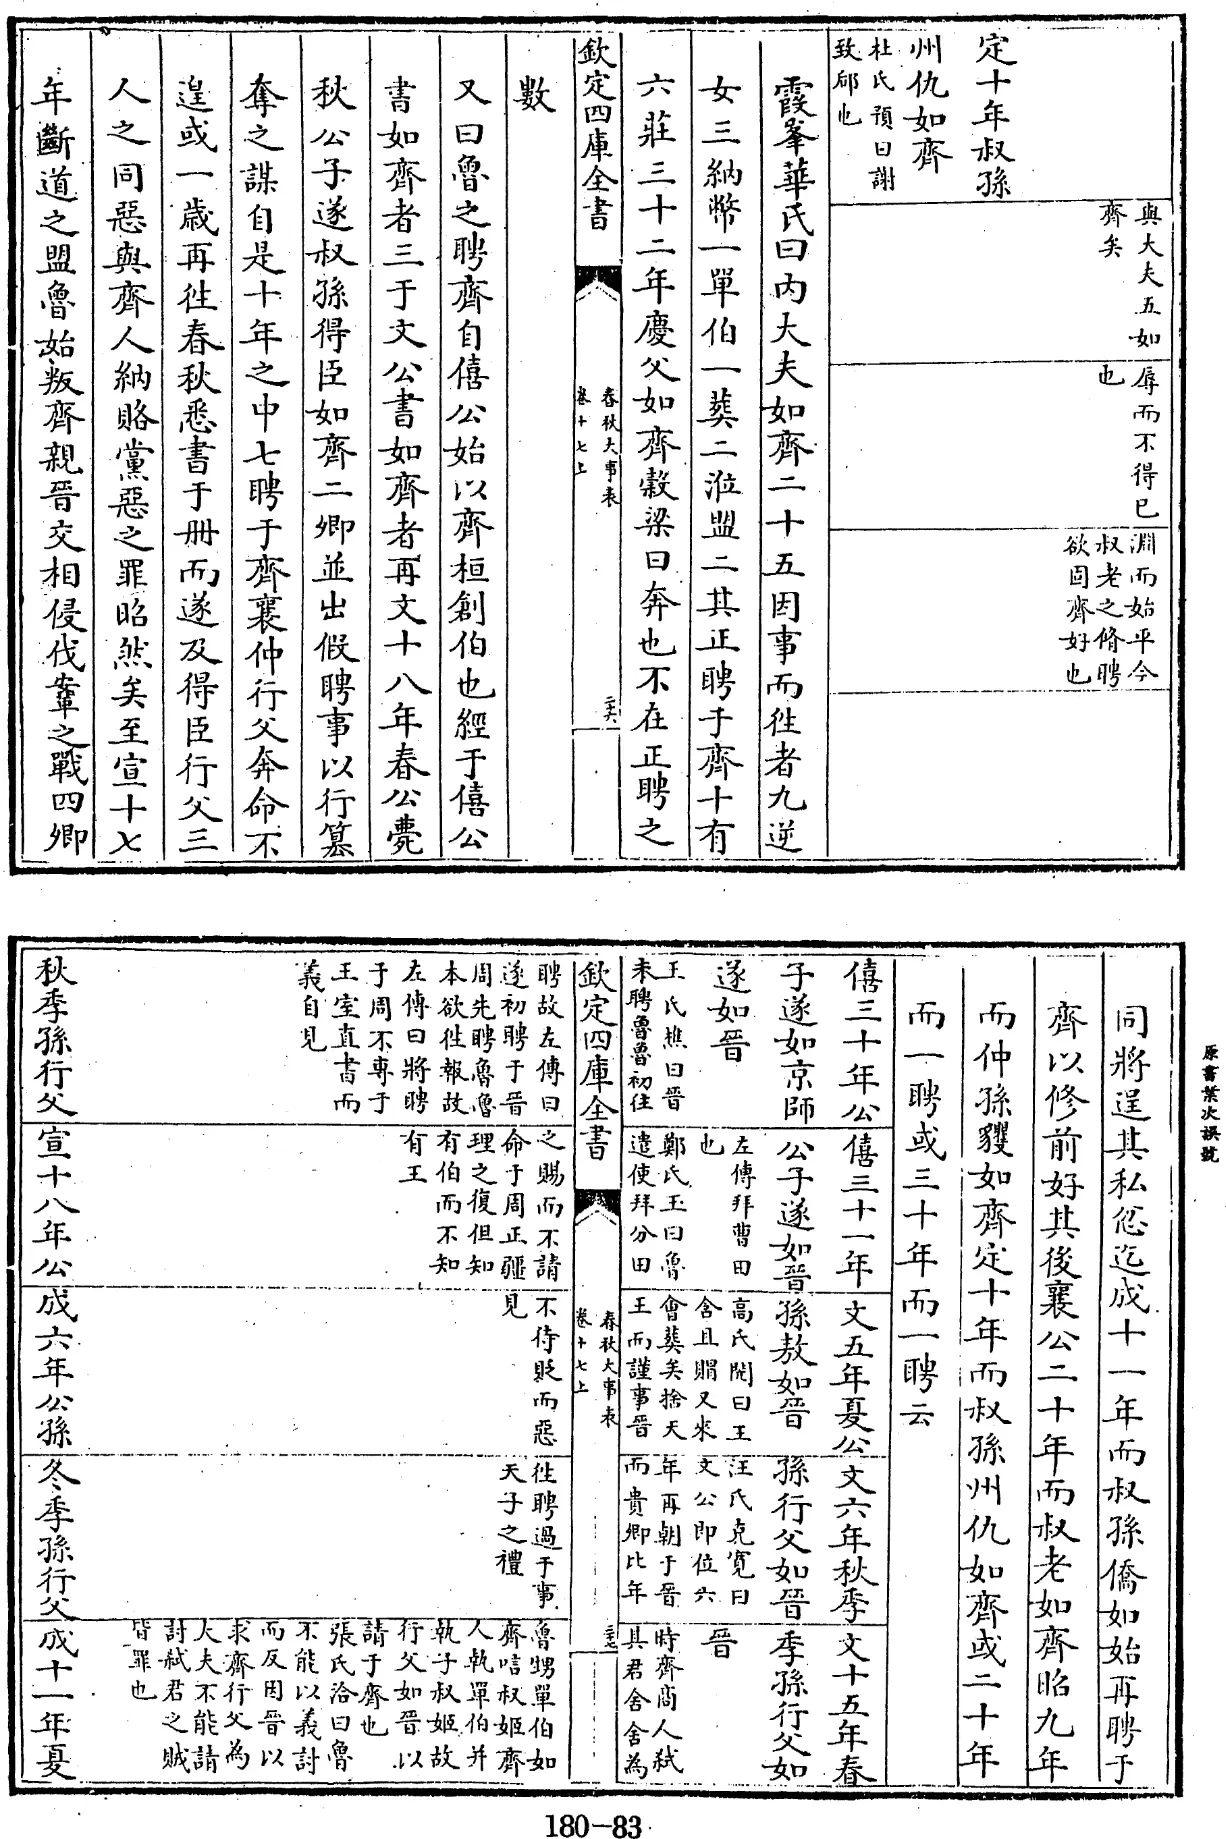 定十年叔孫
州仇如齊
杜氏預曰謝
致郈也
與大夫五如
齊矣
辱而不得已
也
淵而始平今
叔老之脩聘
欲固齊好也
霞峯華氏曰内大夫如齊二十五因事而徃者九逆
女三納幣一單伯一葬二涖盟二其正聘于齊十有
六莊三十二年慶父如齊穀梁曰奔也不在正聘之
欽定四庫全書
春秋大事表
卷十七上
數
又曰魯之聘齊自僖公始以齊桓創伯也經于僖公
書如齊者三于文公書如齊者再文十八年春公薨
秋公子遂叔孫得臣如齊二卿並出假聘事以行篡
奪之謀自是十年之中七聘于齊襄仲行父奔命不
遑或一歲再徃春秋悉書于冊而遂及得臣行父三
人之同惡與齊人納賂黨惡之罪昭然矣至宣十七
年斷道之盟魯始叛齊親晉交相侵伐鞌之戰四卿
原書葉次誤號
同將逞其私忿迄成十一年而叔孫僑如始再聘于
齊以修前好其後襄公二十年而叔老如齊昭九年
而仲孫貜如齊定十年而叔孫州仇如齊或二十年
而一聘或三十年而一聘云
僖三十年公
子遂如京師
遂如晉
王氏樵曰晉
未聘魯魯初徃
僖三十一年
公子遂如晉
左傳拜曹田
也
鄭氏玉曰魯
遣使拜分田
文五年夏公
孫敖如晉
高氏閌曰王
含且賵又來
會葬矣捨天
王而謹事晉
文六年秋季
孫行父如晉
汪氏克寛曰
文公即位六
年再朝于晉
而貴卿比年
文十五年春
季孫行父如
晉
時齊商人弑
其君舍舍為
欽定四庫全書
春秋大事表
卷十七上
聘故左傳曰
遂初聘于晉
周先聘魯魯
本欲徃報故
左傳曰將聘
于周不專于
王室直書而
義自見
之賜而不請
命于周正疆
理之復但知
有伯而不知
有王
不待貶而惡
見
徃聘過于事
天子之禮
魯甥單伯如
齊請叔姬齊
人執單伯并
執子叔姬故
行父如晉以
請于齊也
張氏洽曰魯
不能以義討
而反因晉以
求齊行父為
大夫不能請
討弑君之賊
皆罪也
秋季孫行父
宣十八年公
成六年公孫
冬季孫行父
成十一年夏
180-83